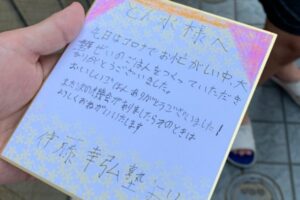 とん水様へ
毛日はコロナでお忙がしい中、大
勢ぜいのごはんをつくっていただき
ありがとうございました。
おいしいごはん ありがとうございました!
また次の機会がありましたらそのときは
よろしくおねがいいたします
伊藤幸弘塾